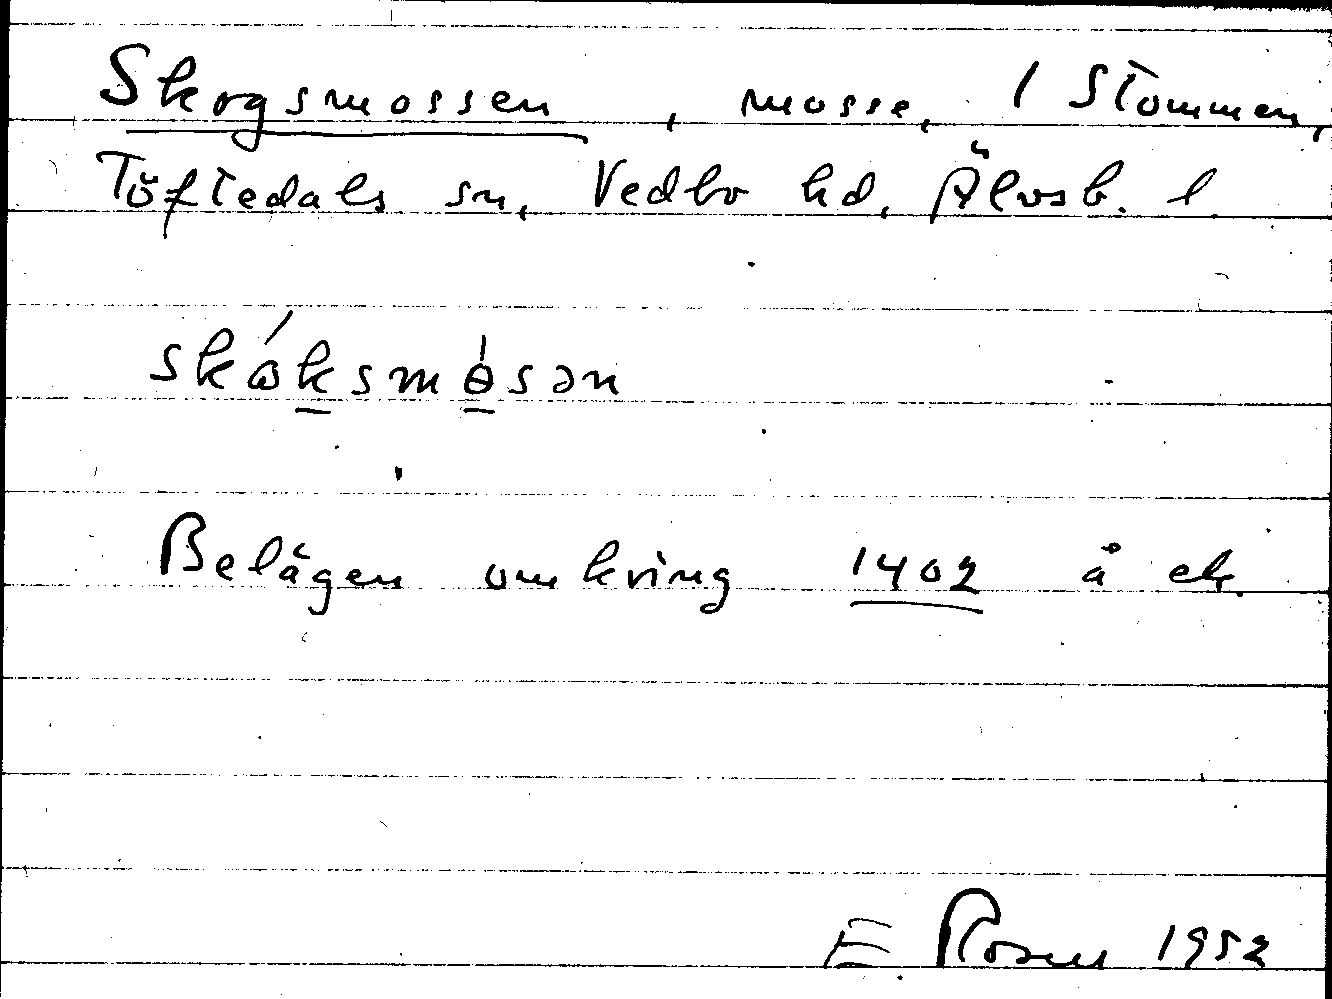 Skogsmossen, mosse, 1 Stommen,
Töftedals sn, Vedbo hd, Älvsb. l.
skɷ́ksmɵ̀sən
Belägen omkring 1402 å ek.
E Rosen 1952